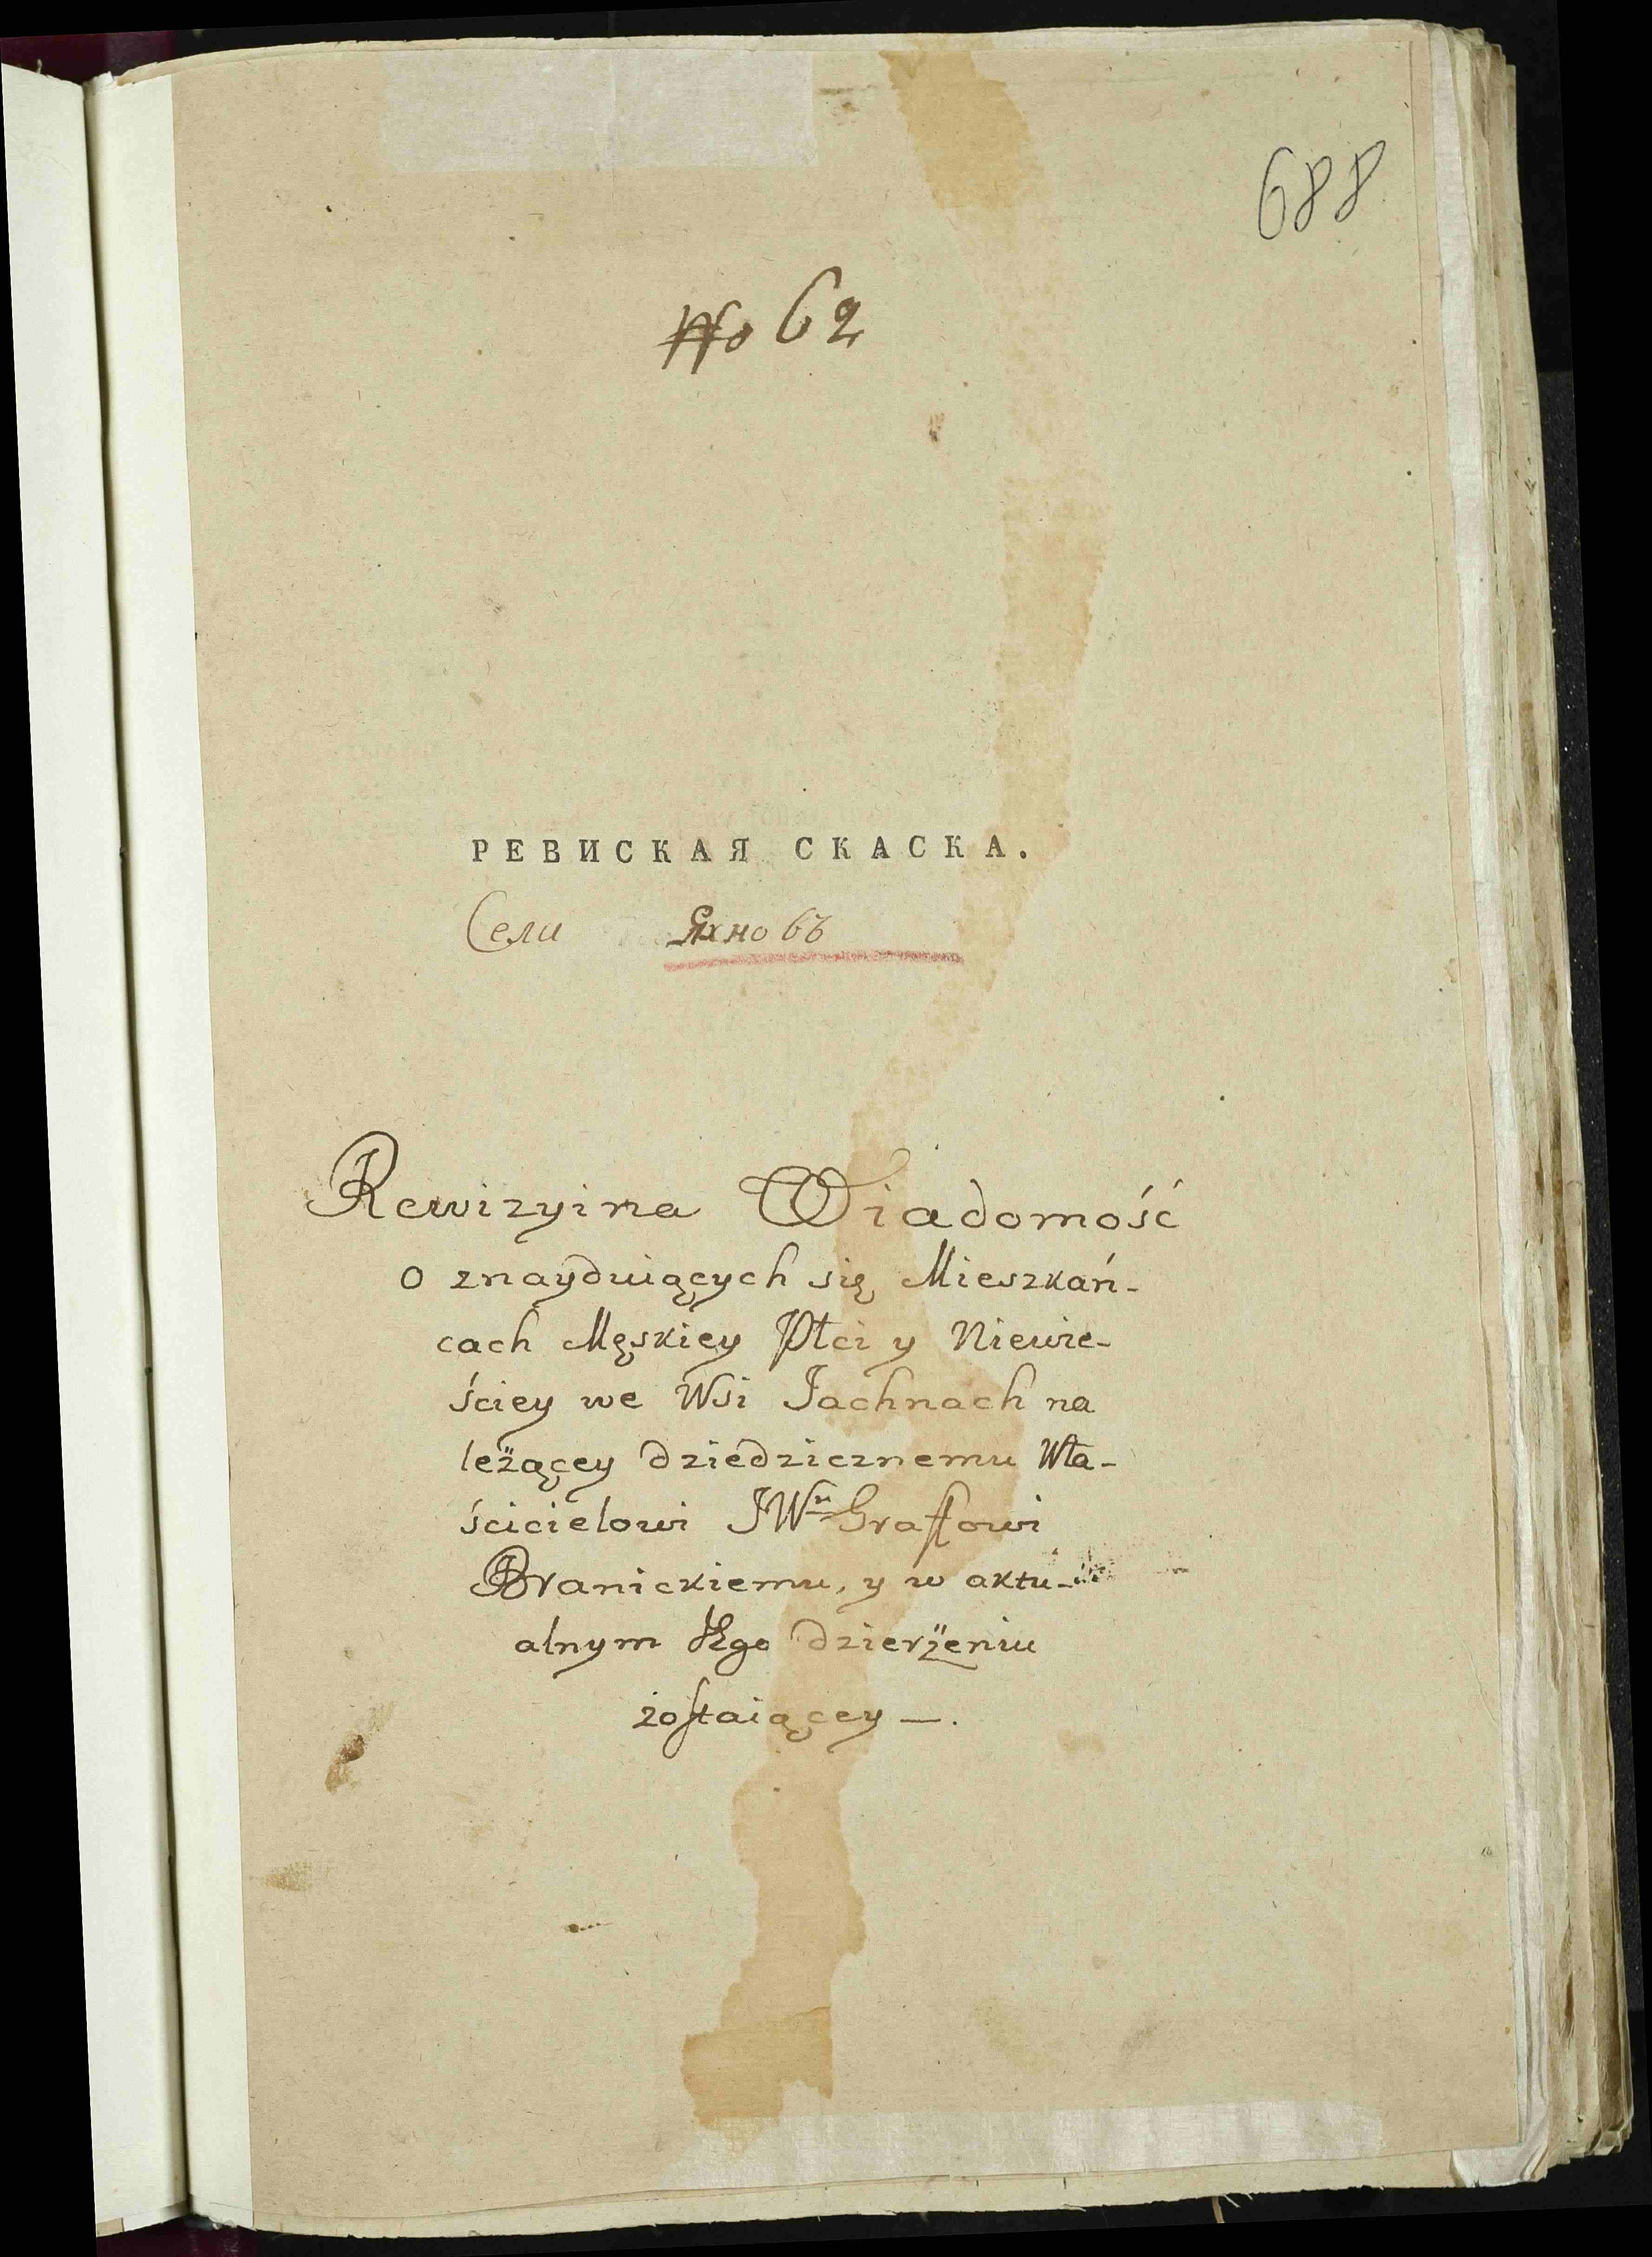 688
No 62
РЕВИСКАЯ СКАСКА.
Сели Яхновъ
Rewizyina Wiadomość
o znayduiących się Mieszkań-
cach Męskiey Płci y Niewie-
ściey we Wsi Jachnach na
leżącey dziedzicznemu Wła-
ścicielowi JWu Graffowi
Branickiemu, y w aktu-
alnym Jego dzierżeniu
zostaiącey —.